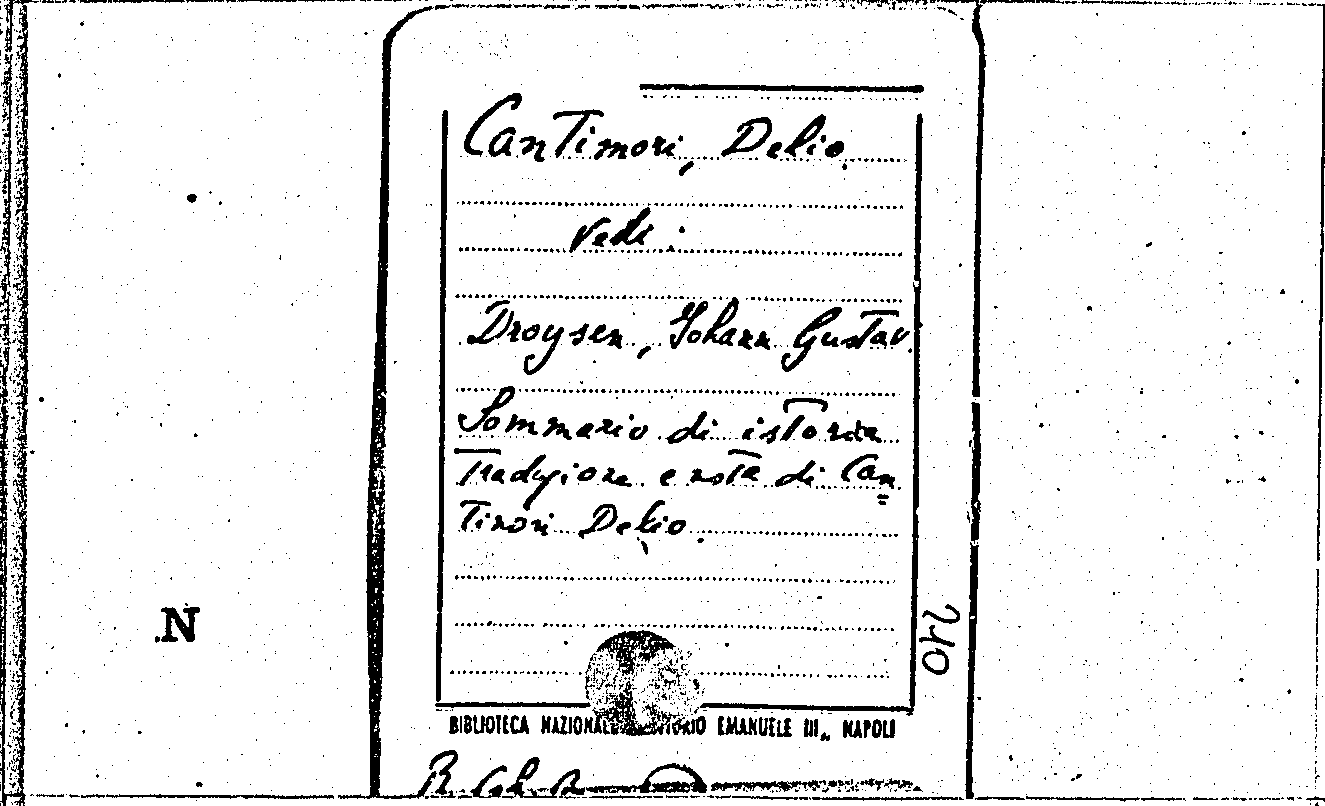 Cantimori, Delio.
Vedi:
Droysen, Johann Gustav.
Sommario di istoria
Traduzione e note di Can
timori Delio.
210
N
BIBLIOTECA NAZIONALE EMANUELE III„ NAPOLI